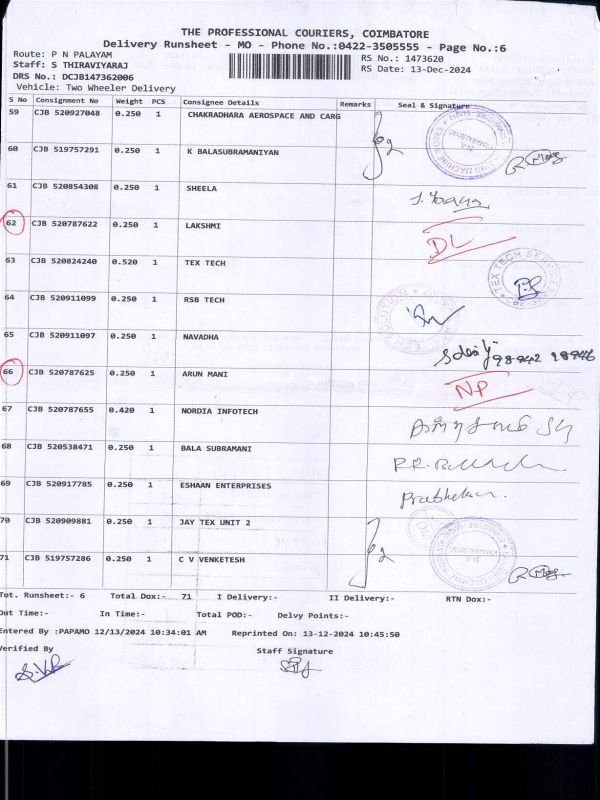 THE PROFESSIONAL COURIERS, COIMBATORE
Delivery Runsheet - MO - Phone No.:0422-3505555 - Page No.:6
Route: P N PALAYAM
RS No.: 1473620
Staff: S THIRAVIYARAJ
RS Date: 13-Dec-2024
DRS No.: DCJB147362006
Vehicle: Two Wheeler Delivery
S No Consignment No Weight PCS Consignee Details Remarks Seal & Signature
59 CJB 520927048 0.250 1 CHAKRADHARA AEROSPACE AND CARG
60 CJB 519757291 0.250 1 K BALASUBRAMANIYAN
61 CJB 520854308 0.250 1 SHEELA
62 CJB 520787622 0.250 1 LAKSHMI DL
63 CJB 520824240 0.520 1 TEX TECH TEX TECH SERVICES
64 CJB 520911099 0.250 1 RSB TECH
65 CJB 520911097 0.250 1 NAVADHA
66 CJB 520787625 0.250 1 ARUN MANI NP
67 CJB 520787655 0.420 1 NORDIA INFOTECH
68 CJB 520538471 0.250 1 BALA SUBRAMANI
69 CJB 520917785 0.250 1 ESHAAN ENTERPRISES
70 CJB 520909881 0.250 1 JAY TEX UNIT 2
71 CJB 519757286 0.250 1 C V VENKETESH
Tot. Runsheet:- 6 Total Dox:- 71 I Delivery:- II Delivery:- RTN Dox:-
Out Time:- In Time:- Total POD:- Delvy Points:-
Entered By :PAPAMO 12/13/2024 10:34:01 AM Reprinted On: 13-12-2024 10:45:50
Verified By Staff Signature